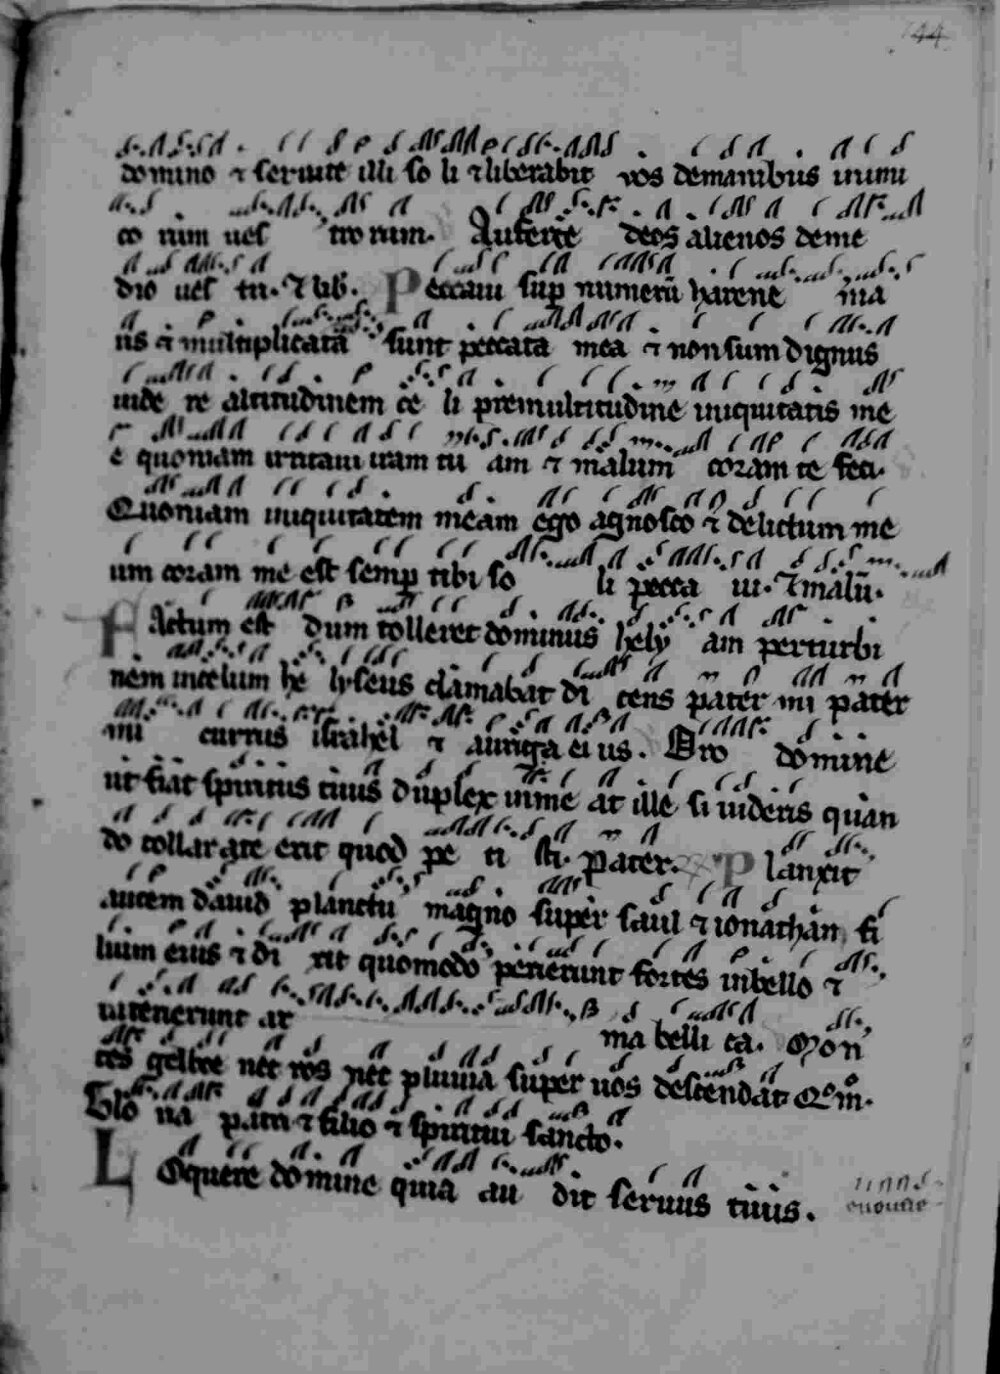 144
domino ⁊ seruite illi so li ⁊ liberabit vos demanibus inimi
co rum ues tro rum. Auferte deos alienos deme
dio ues tri. ⁊ lib. Peccaui sup numerū harene ma
ris ⁊ multiplicata sunt peccata mea ⁊ non sum dignus
uide re altitudinem ce li pre multitudine iniquitatis me
e quoniam irritaui iram tu am ⁊ malum coram te feci.
Quoniam iniquitatem meam ego agnosco ⁊ delictum me
um coram me est semp tibi so li pecca ui. ⁊ malū.
Factum est dum tolleret dominus hely am per turbi
nem in celum he lyseus clamabat di cens pater mi pater
mi currus israhel ⁊ auriga ei us. Oro domine
ut fiat spiritus tuus duplex in me at ille si uideris quan
do tollar a te erit quod pe ti sti. Pater. Planxit
autem dauid planctu magno super saul ⁊ ionathan fi
lium eius ⁊ di xit quomodo perierunt fortes in bello ⁊
interierunt ar ma belli ca. Mon
tes gelboe nec ros nec pluuia super uos descendat Qº m.
Glo ria patri ⁊ filio ⁊ spiritui sancto.
Loquere domine quia au dit seruus tuus. euouae